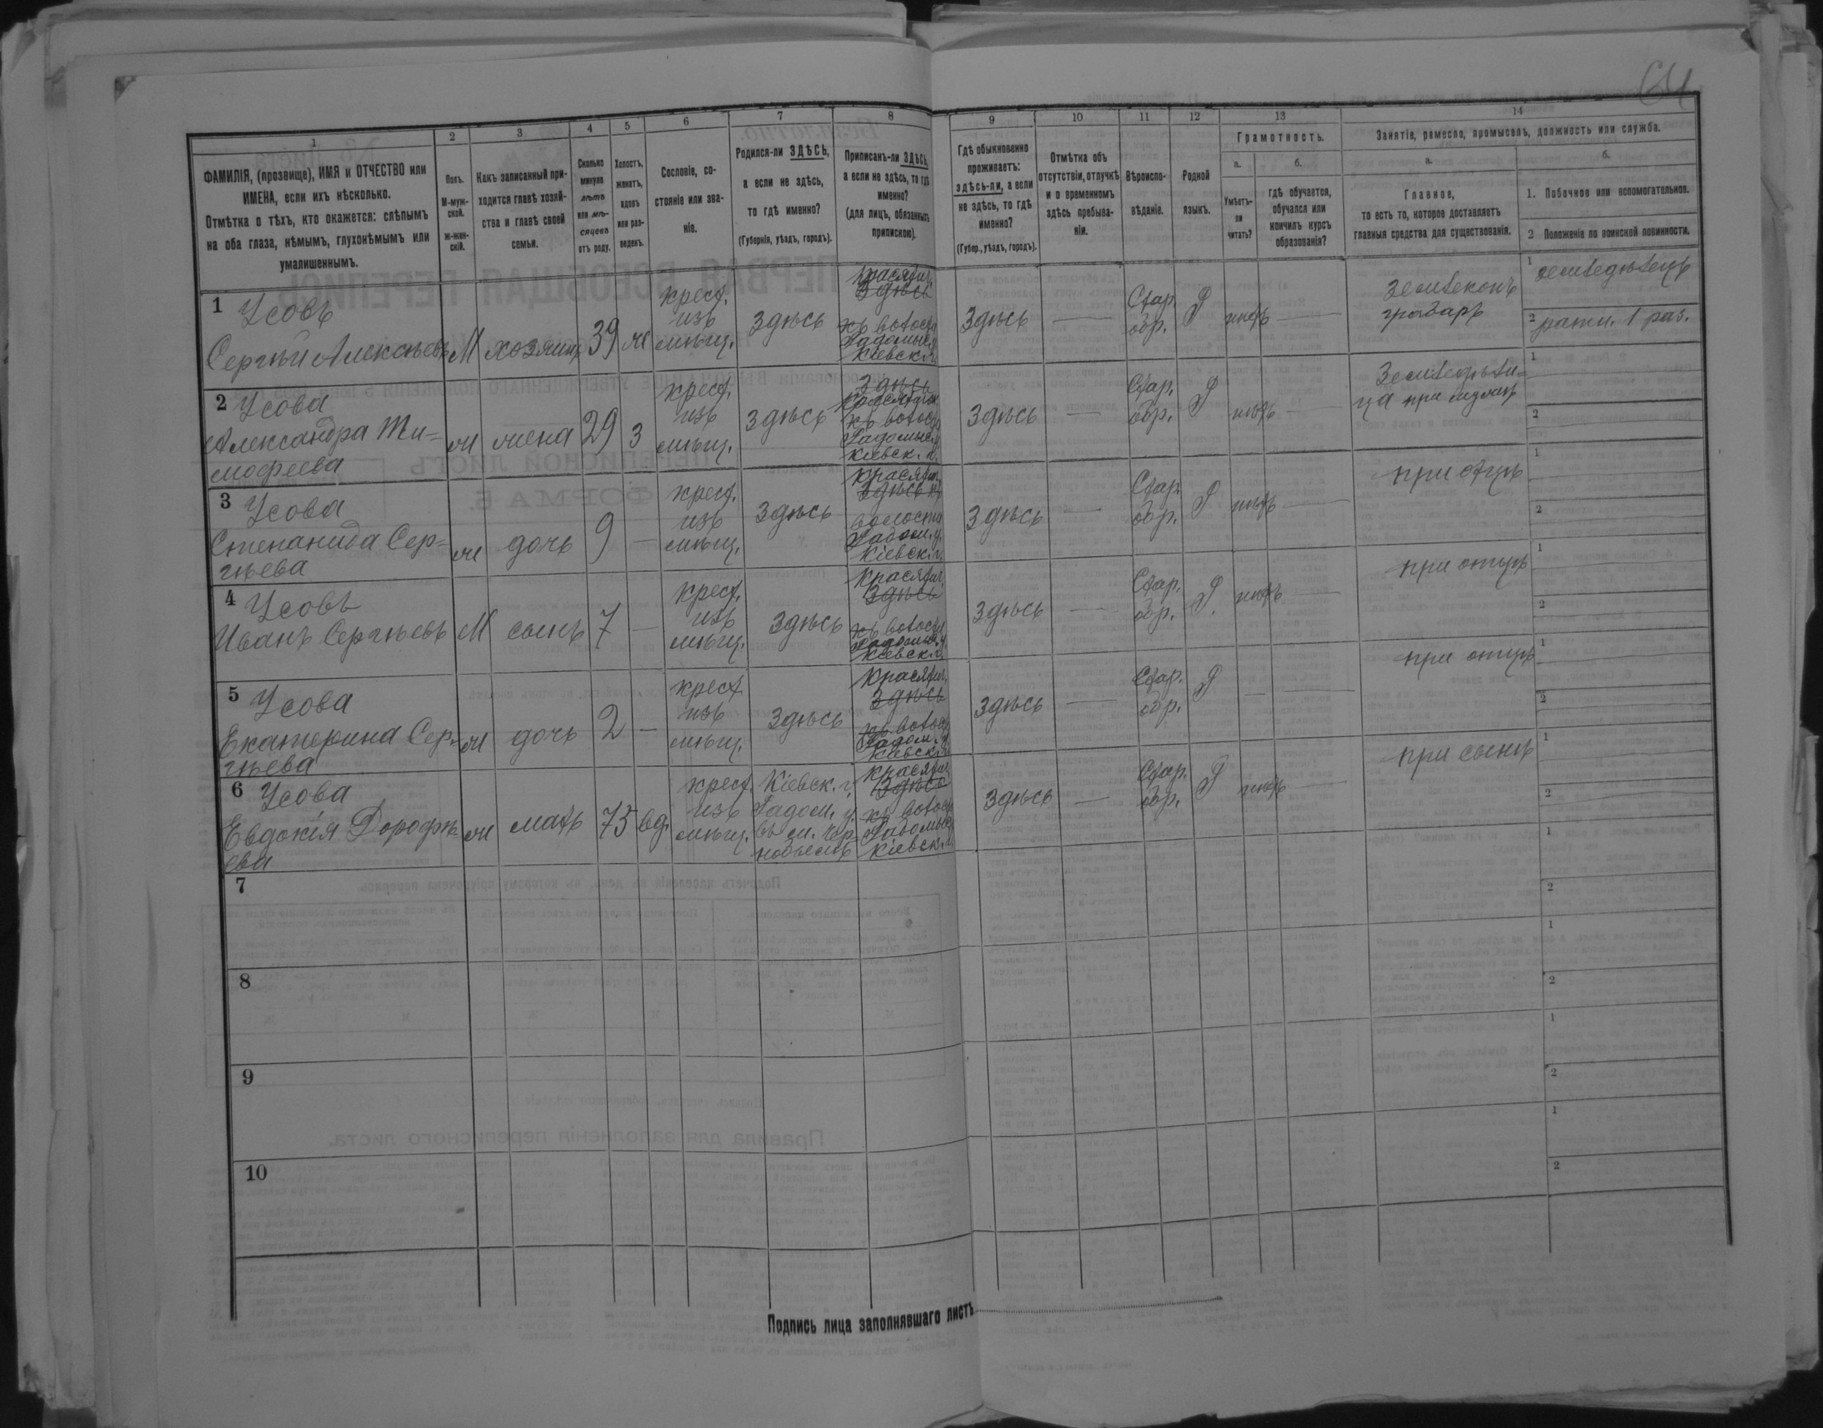 1
2
3
4
5
6
7
8
9
10
11
12
13
14
ФАМИЛІЯ, (прозвище), ИМЯ и ОТЧЕСТВО или
ИМЕНА, если ихъ нѣсколько.
Отмѣтка о тѣхъ, кто окажется: слѣпымъ
на оба глаза, нѣмымъ, глухонѣмымъ или
умалишеннымъ.
Полъ.
М-муж-
ской.
Ж-жен-
скій.
Какъ записанный при-
ходится главѣ хозяй-
ства и главѣ своей
семьи.
Сколько
минуло
лѣтъ
или мѣ-
сяцевъ
отъ роду.
Холостъ,
женатъ,
вдовъ
или раз-
веденъ.
Сословіе, со-
стояніе или зва-
ніе.
Родился-ли ЗДѢСЬ,
а если не здѣсь,
то гдѣ именно?
(Губернія, уѣздъ, городъ).
Приписанъ-ли ЗДѢСЬ,
а если не здѣсь, то гдѣ
именно?
(для лицъ, обязанныхъ
припискою).
Гдѣ обыкновенно
проживаетъ:
здѣсь-ли, а если
не здѣсь, то гдѣ
именно?
(Губер., уѣздъ, городъ).
Отмѣтка объ
отсутствіи, отлучкѣ
и о временномъ
здѣсь пребыва-
ніи.
Вѣроиспо-
вѣданіе.
Родной
языкъ.
Грамотность.
а.
Умѣетъ-
ли
читать?
б.
гдѣ обучается,
обучался или
кончилъ курсъ
образованія?
Занятіе, ремесло, промыселъ, должность или служба.
а.
Главное,
то есть то, которое доставляетъ
главныя средства для существованія.
б.
1. Побочное или вспомогательное.
2 Положеніе по воинской повинности.
1 Усовъ
Сергѣй Алексѣевъ М хозяинъ 39 ж
крест.
изъ
мѣщ.
Здѣсь
Здѣсь
Радомысл.
Кіевск. г.
Здѣсь —
Стар.
обр.
Р нѣтъ —
грабарь
1 земледѣлецъ
2 ратн. 1 раз.
2 Усова
Александра Ти-
мофеева
ж жена 29 З
крест.
изъ
мѣщ.
Здѣсь
Здѣсь
Радомысл.
Кіевск. г.
Здѣсь —
Стар.
обр.
Р нѣтъ —
1
2
3 Усова
Степанида Сер-
гѣева
ж дочь 9 —
крест.
изъ
мѣщ.
Здѣсь
Здѣсь
волости
Радом. у.
Кіевск. г.
Здѣсь —
Стар.
обр.
Р нѣтъ —
при отцѣ
1
2
4 Усовъ
Иванъ Сергѣевъ М сынъ 7 —
крест.
изъ
мѣщ.
Здѣсь
Здѣсь
Кіевск. г.
Здѣсь —
Стар.
обр.
Р. нѣтъ —
при отцѣ
1
2
5 Усова
Екатерина Сер-
гѣева
ж дочь 2 —
крест.
изъ
мѣщ.
Здѣсь
Здѣсь
Радом. у.
Кіевск. г.
Здѣсь —
Стар.
обр.
Р — —
при отцѣ
1
2
6 Усова
Евдокія Дорофѣ
ева
ж мать 75 вд.
крест.
изъ
мѣщ.
Кіевск. г.
Радом. у.
въ м. Чер
нобылѣ
Здѣсь
Радомысл.
Кіевск. г.
Здѣсь —
Стар.
обр.
Р нѣтъ —
при сынѣ
1
2
7
1
2
8
1
2
9
1
2
10
1
2
Подпись лица заполнявшаго листъ